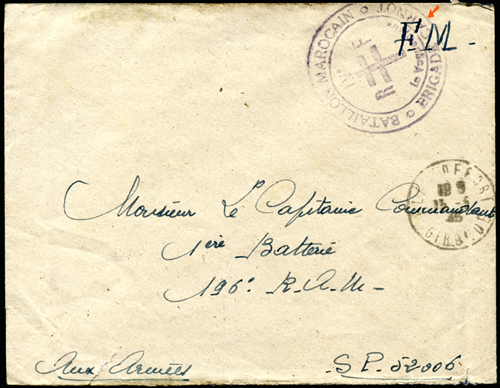 F.M.
BATAILLON MAROCAIN
BRIGADE
R F
GIRONDE
Monsieur Le Capitaine Commandant
1ère Batterie
196e R.A.M-
Aux Armées
S.P. 52006